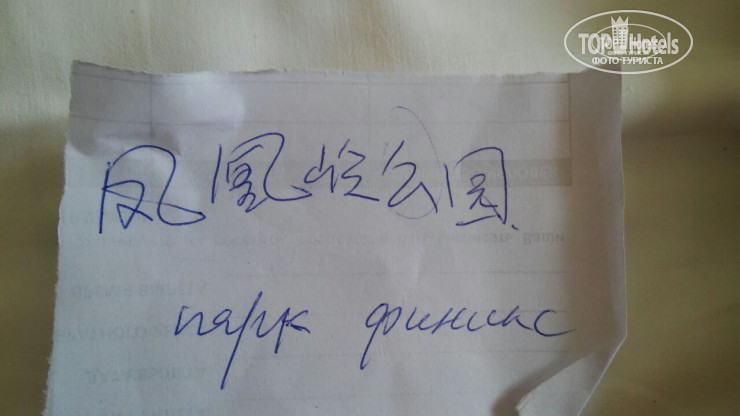 TOP Hotels
ФОТО ТУРИСТА
凤凰岭公园
парк финикс